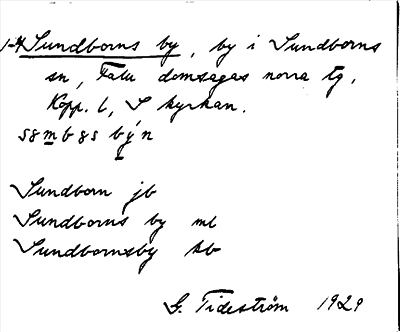 1-4 Sundborns by, by i Sundborns
sn, Falu domsagas norra tg,
Kopp. l, S kyrkan.
Sundborn jb
Sundborns by ml
Sundbornsby kb
G. Tideström 1929